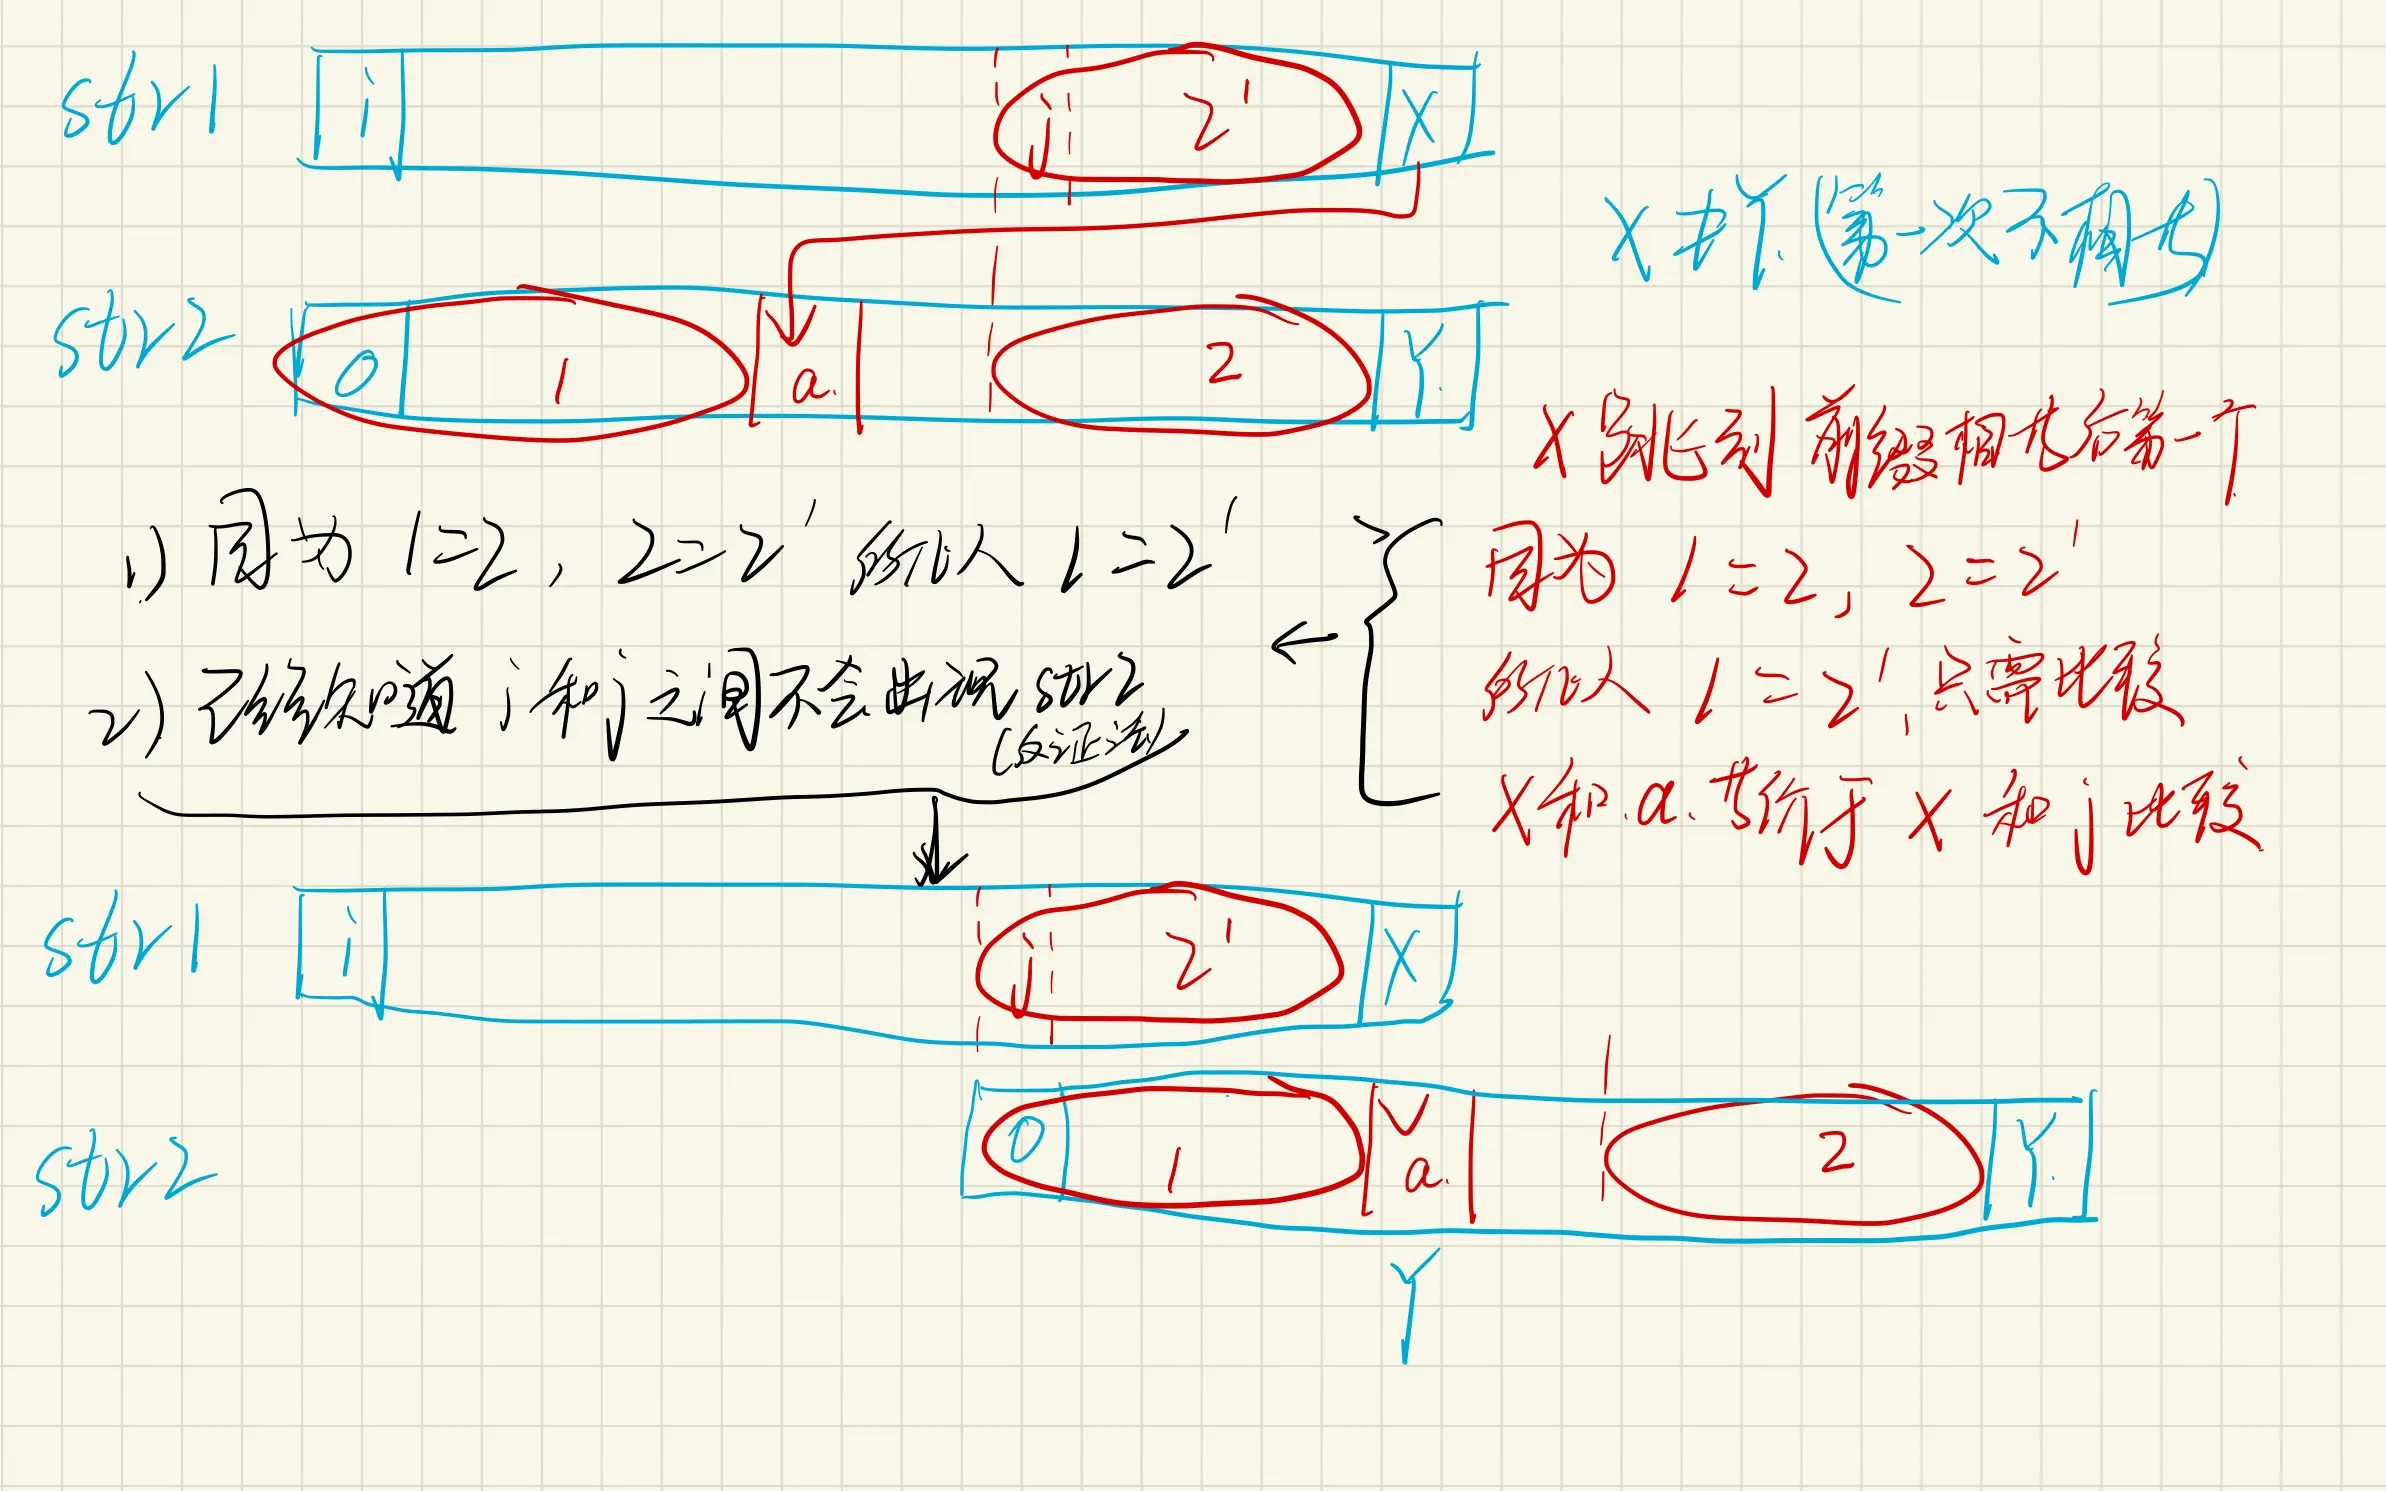 str1 i j 2' X
X≠Y (第一次不相等)
str2 0 1 a. 2 Y.
X 跳到前缀相等后第一个
1) 因为 1=2, 2=2' 所以 1=2'
因为 1=2, 2=2'
所以 1=2', 只需比较
2) 已经知道 i和j之间不会出现 str2
(反证法)
X和.a.等价于 X 和 j 比较
str1 i j 2' X
str2 0 1 a. 2 Y.
Y